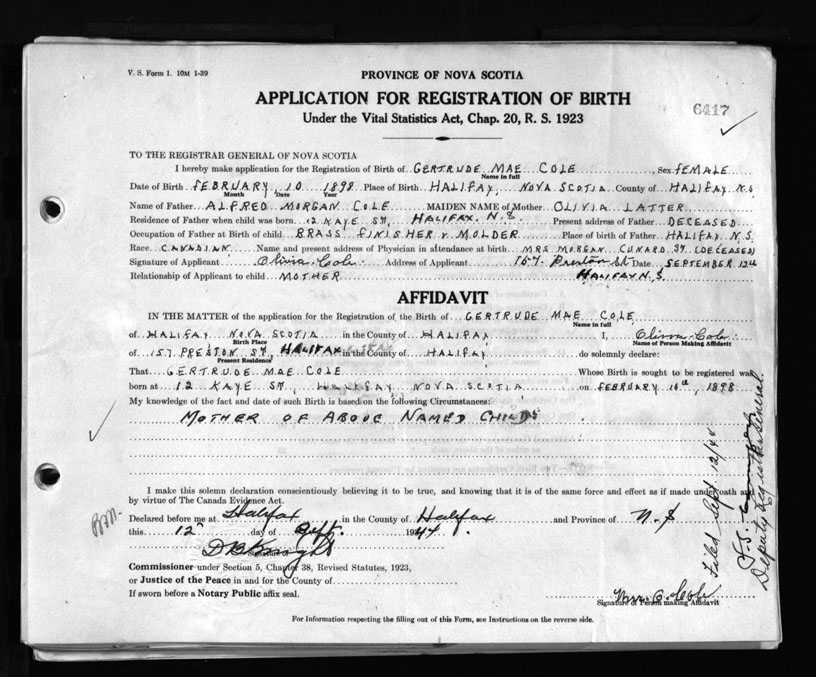 V. S. Form 1. 10M 1-39
PROVINCE OF NOVA SCOTIA
APPLICATION FOR REGISTRATION OF BIRTH
6417
Under the Vital Statistics Act, Chap. 20, R. S. 1923
TO THE REGISTRAR GENERAL OF NOVA SCOTIA
I hereby make application for the Registration of Birth of GERTRUDE MAE COLE, Sex FEMALE
Name in full
Date of Birth FEBRUARY 10 1898 Place of Birth HALIFAX, NOVA SCOTIA County of HALIFAX N.S
Month Date Year
Name of Father ALFRED MORGAN COLE MAIDEN NAME of Mother OLIVIA LATTER
Residence of Father when child was born 12 KAYE ST, HALIFAX. N.S. Present address of Father DECEASED
Occupation of Father at Birth of Child BRASS FINISHER & MOLDER Place of birth of Father HALIFAX N.S.
Race CANADIAN Name and present address of Physician in attendance at birth MRS MORGAN CUNARD ST (DECEASED)
Signature of Applicant Olivia Cole Address of Applicant 157 Preston St Date SEPTEMBER 12th
Relationship of Applicant to child MOTHER HALIFAX N.S
AFFIDAVIT
IN THE MATTER of the application for the Registration of the Birth of GERTRUDE MAE COLE
Name in full
of HALIFAX NOVA SCOTIA in the County of HALIFAX I, Olivia Cole
Birth Place Name of Person Making Affidavit
of 157 PRESTON ST, HALIFAX in the County of HALIFAX do solemnly declare:
Present Residence
That GERTRUDE MAE COLE Whose Birth is sought to be registered was
born at 12 KAYE ST, HALIFAX NOVA SCOTIA on FEBRUARY 10th, 1898
My knowledge of the fact and date of such Birth is based on the following Circumstances:
MOTHER OF ABOVE NAMED CHILD
I make this solemn declaration conscientiously believing it to be true, and knowing that it is of the same force and effect as if made under oath and
by virtue of The Canada Evidence Act.
Declared before me at Halifax in the County of Halifax and Province of N.S
this 12 day of Sept. 1944.
Commissioner under Section 5, Chapter 38, Revised Statutes, 1923,
or Justice of the Peace in and for the County of
If sworn before a Notary Public affix seal.
Mrs. O. Cole
Signature of Person making Affidavit
For Information respecting the filling out of this Form, see Instructions on the reverse side.
Filed Sept. 12/44
Deputy Registrar General